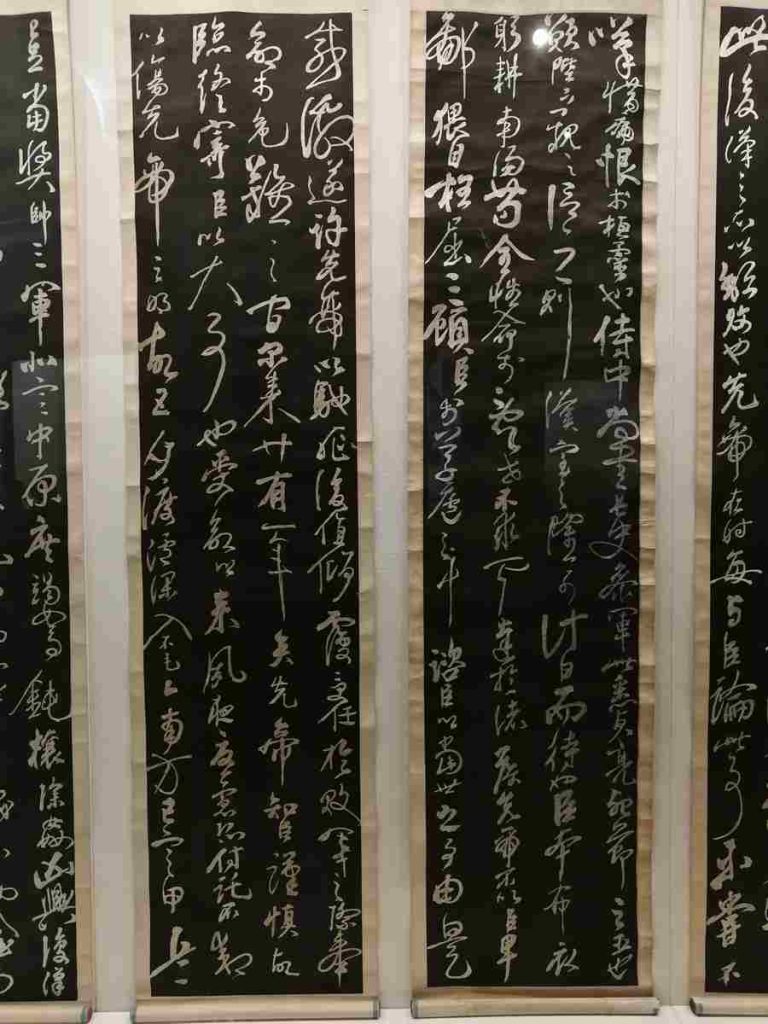 此後漢之所以傾頹也先帝在時每與臣論此事未嘗不
嘆惜痛恨於桓靈也侍中尚書長史參軍此悉貞亮死節之臣也
願陛下親之信之則漢室之隆可計日而待也臣本布衣
躬耕南陽苟全性命於亂世不求聞達於諸侯先帝不以臣卑
鄙猥自枉屈三顧臣於草廬之中諮臣以當世之事由是
感激遂許先帝以馳驅後值傾覆受任於敗軍之際奉
命於危難之間爾來廿有一年矣先帝智臣謹慎故
臨終寄臣以大事也受命以來夙夜憂慮恐付託不效
以傷先帝之明故五月渡瀘深入不毛今南方已定甲兵
足當獎帥三軍北定中原庶竭駑鈍攘除姦凶興復漢